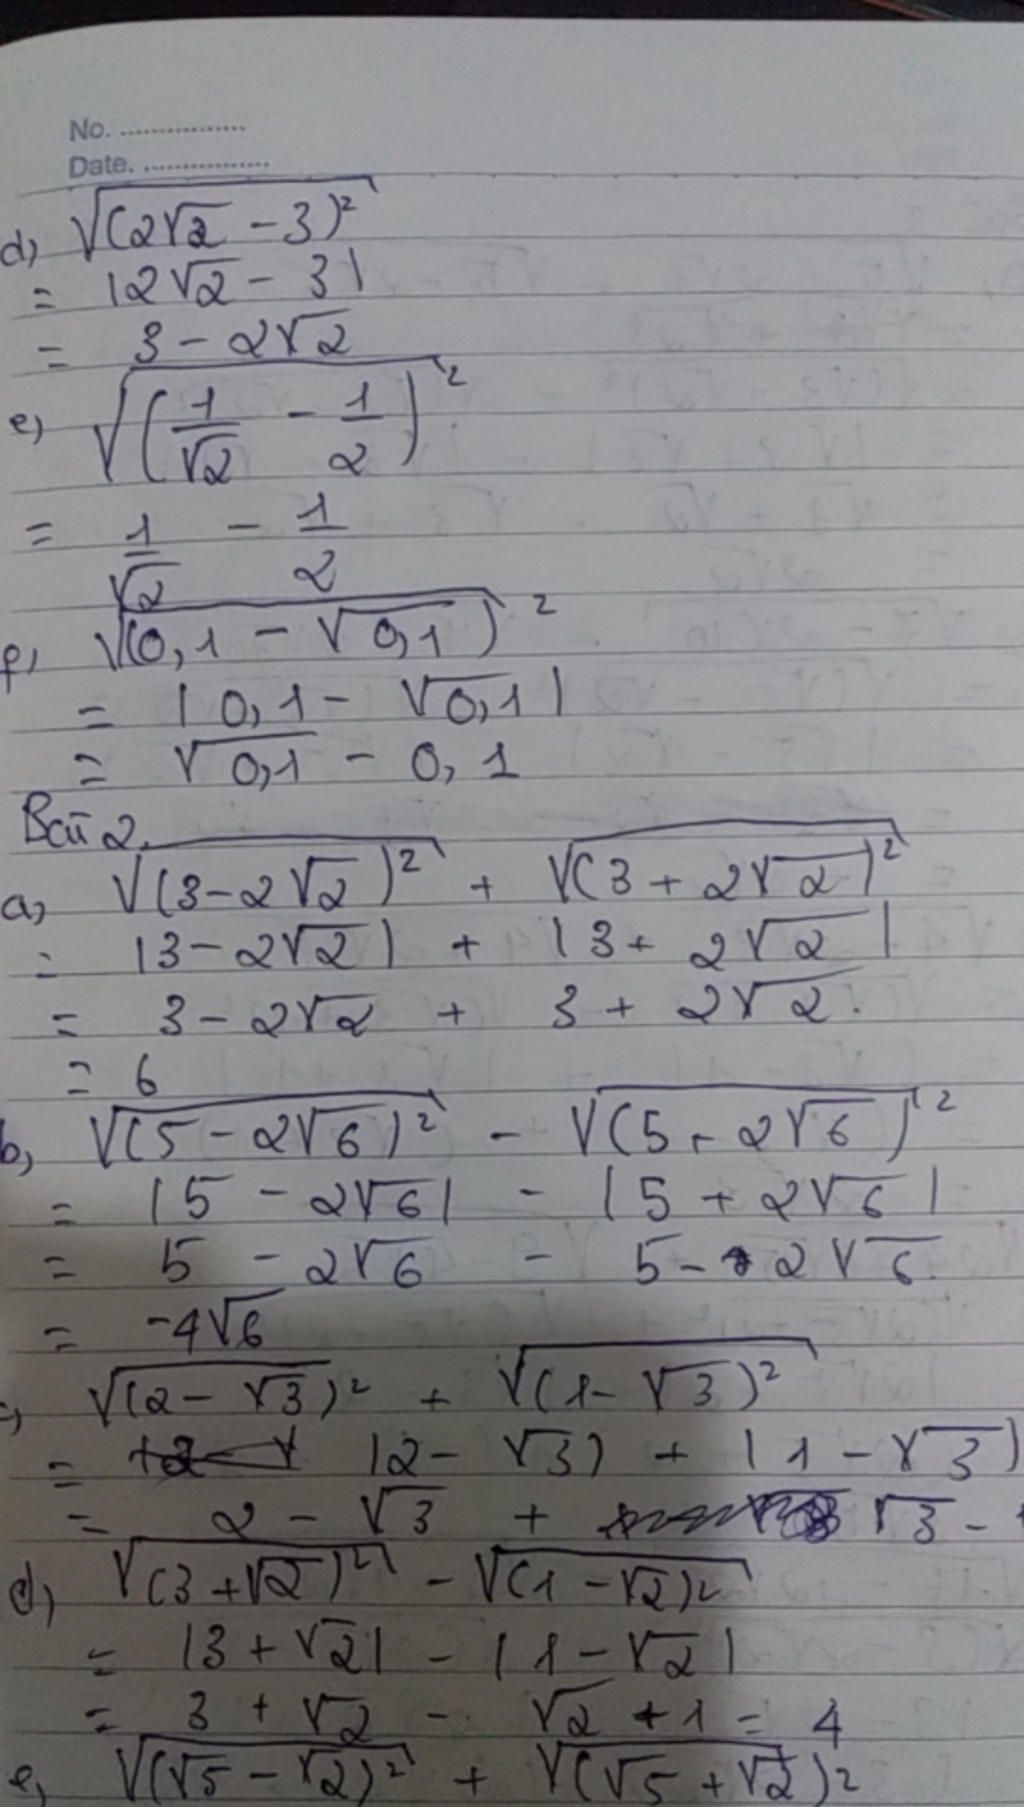 No. ................
Date. ................
d, √(2√2 - 3)²
= |2√2 - 3|
= 3 - 2√2
e) √(1/√2 - 1/2)²
= 1/√2 - 1/2
f, √(0,1 - √0,1)²
= |0,1 - √0,1|
= √0,1 - 0,1
Bài 2.
a, √(3-2√2)² + √(3 + 2√2)²
= |3-2√2| + |3+ 2√2|
= 3-2√2 + 3 + 2√2.
= 6
b, √(5 - 2√6)² - √(5 + 2√6)²
= |5 - 2√6| - |5 + 2√6|
= 5 - 2√6 - 5 - 2√6.
= -4√6
c, √(2 - √3)² + √(1 - √3)²
= |2 - √3| + |1 - √3|
= 2 - √3 + √3 -
d, √(3 + √2)² - √(1 - √2)²
= |3 + √2| - |1 - √2|
= 3 + √2 - √2 + 1 = 4
e, √(√5 - √2)² + √(√5 + √2)²